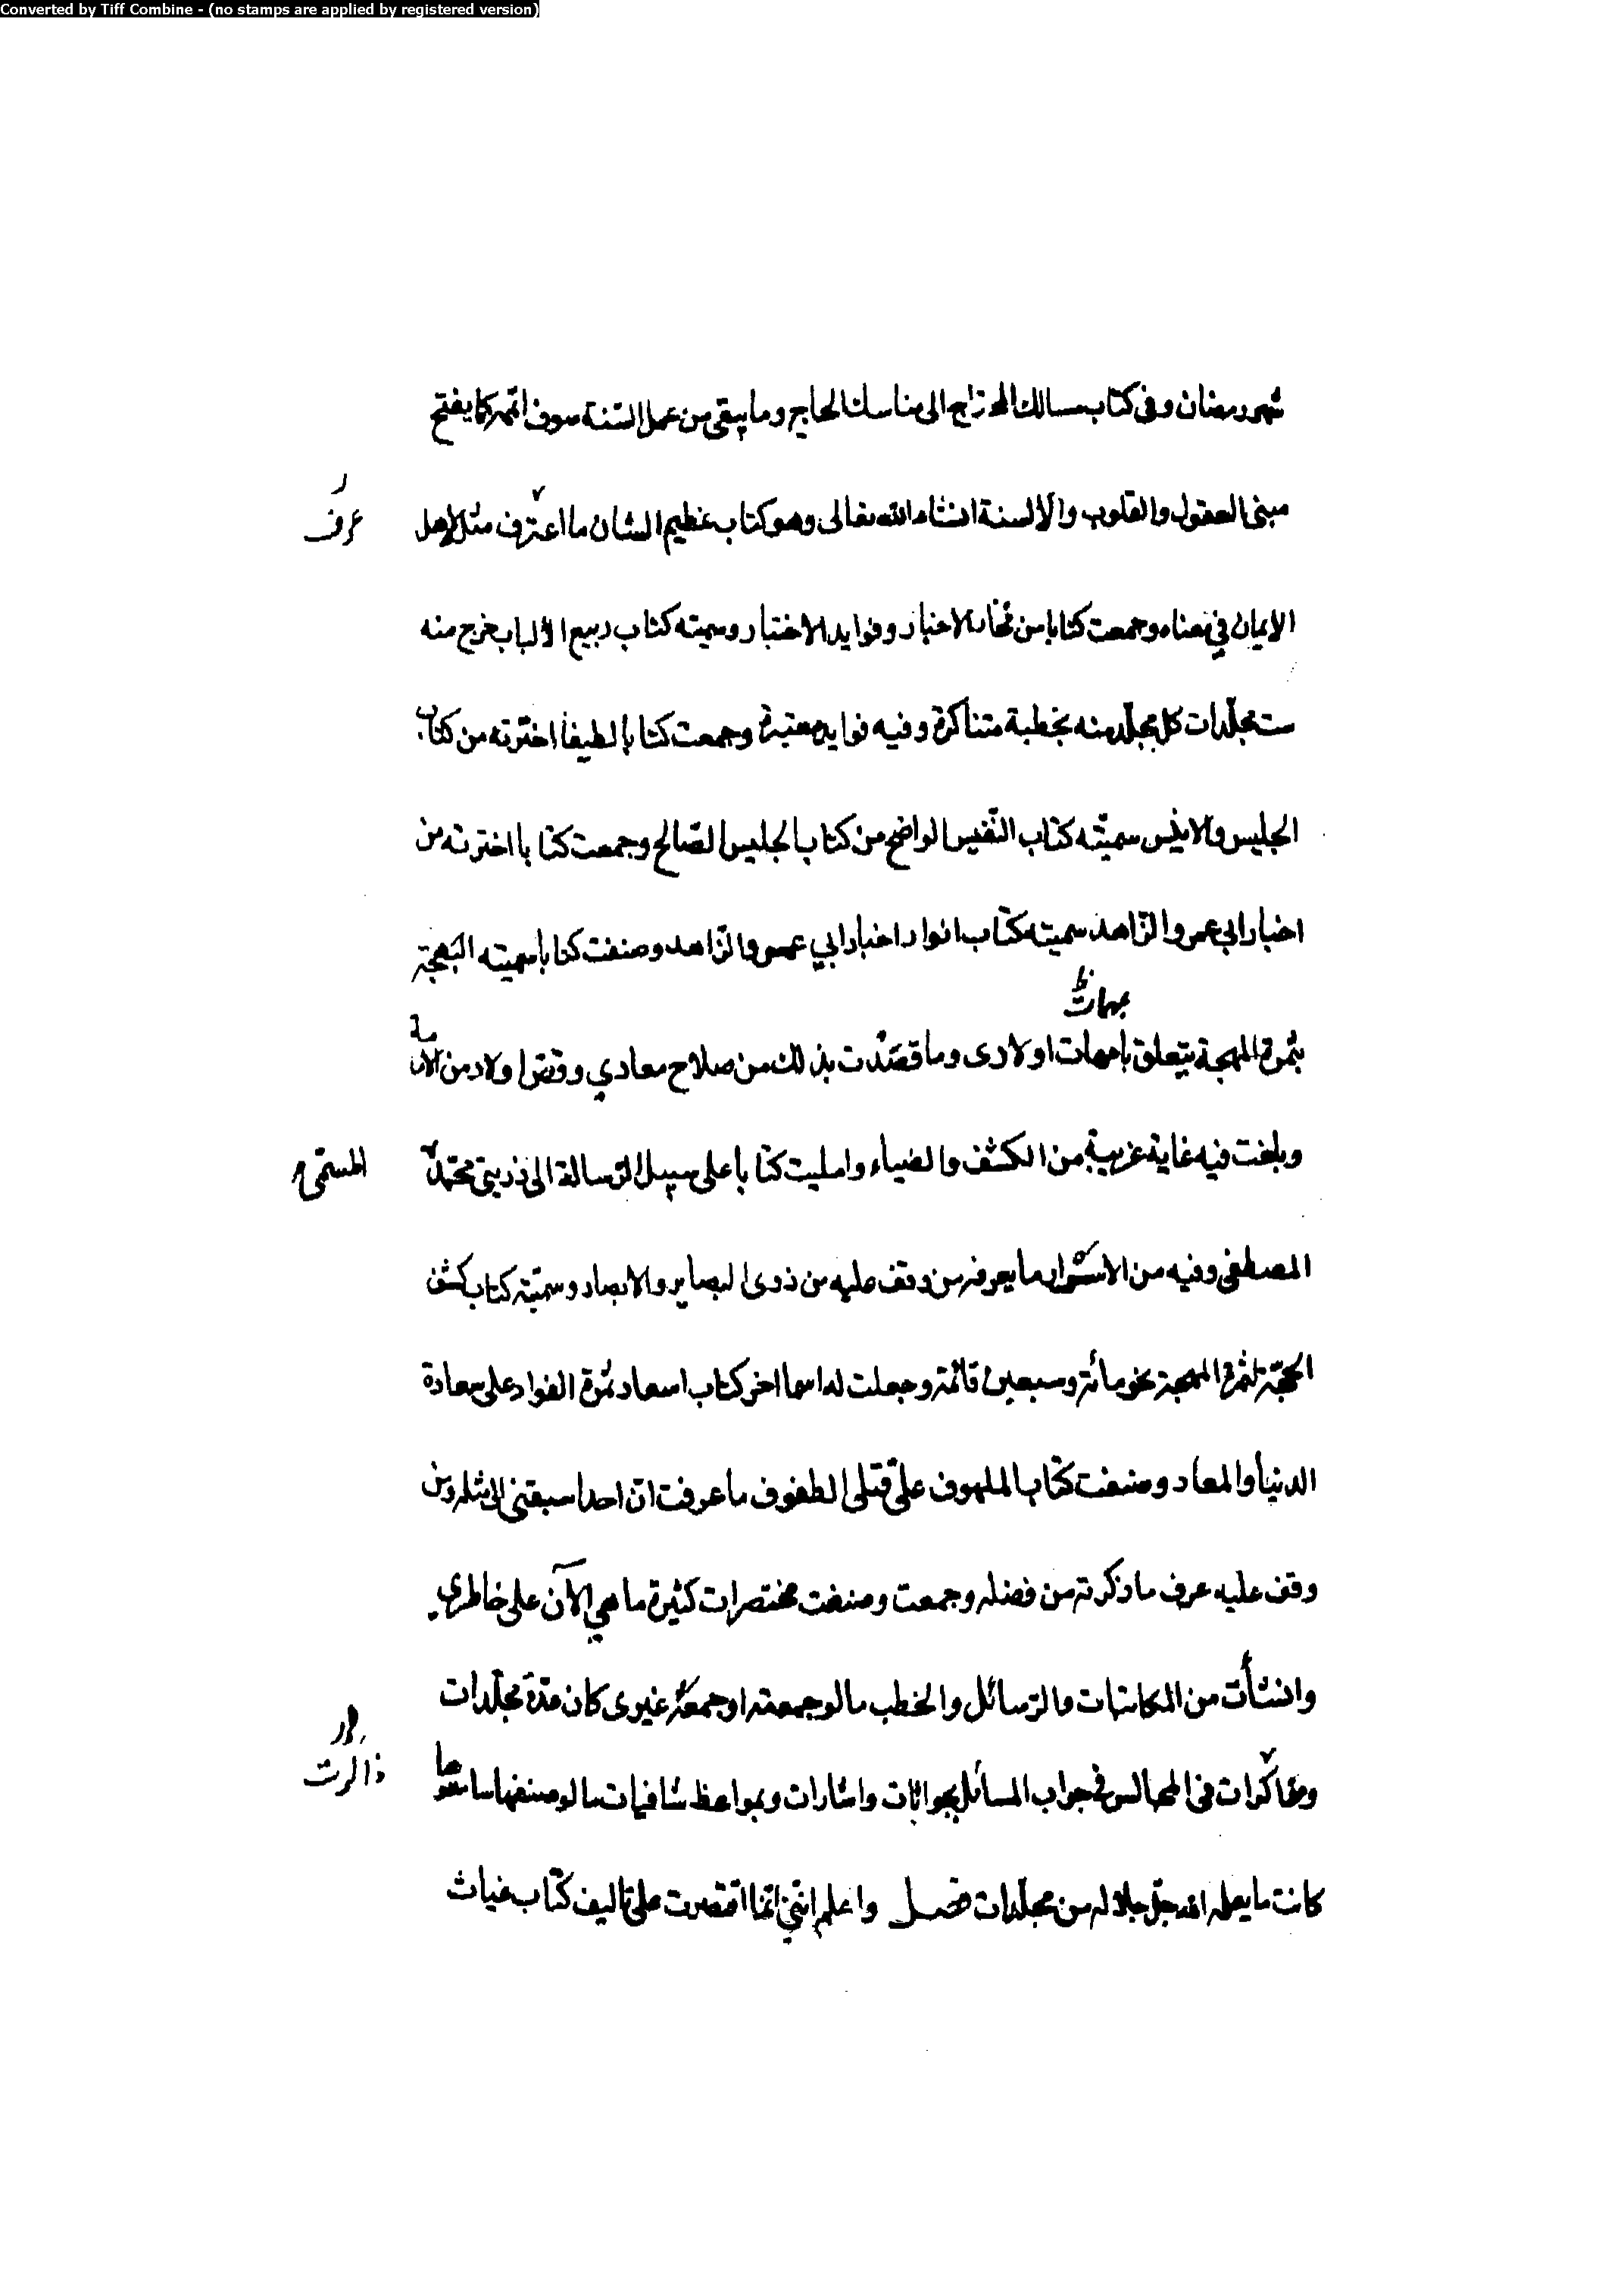 Converted by Tiff Combine - (no stamps are applied by registered version)
شهر رمضان وفى كتاب مسالك المحتاج الى مناسك الحاج وما يبقى من عمل السّنة سوف اتمه كما يفتح
مبنى العقول والقلوب والالسنة انشاء الله تعالى وهو كتاب عظيم الشان ما اعترف مثله لاهل
عرف
الايمان في معناه وجمعت كتابا من الاخبار وفوايد الاختبار وسميته كتاب ربيع الالباب خرج منه
ست مجلّدات كل مجلّد منه بخطبة متناكرة وفيه فوايد معتبرة وجمعت كتابا لطيفا اخترته من كتاب
الجليس والانيس سميّته كتاب النّفيس الواضح من كتاب الجليس الصّالح وجمعت كتابا اخترته من
اخبار ابي عمرو الزّاهد سميته كتاب انوار اخبار ابي عمرو الزّاهد وصنفت كتابا سميته البهجة
بمهات
بثمرة المهجة يتعلق بامهات اولادى وما قصدت بذلك من صلاح معادي و اولاد من
وبلغت فيه غاية غريبة من الكشف والضياء وامليت كتابا على سبيل الرّسالة الى ذريتى محمّد
المسمى
المصطفى وفيه من الاسرار ما يعرفه من وقف عليه من ذوى البصاير والابصار وسميّته كتاب كشف
المحجّة لثمرة المهجة نحو مائة وسبعين قائمة وجعلت له اسما اخر كتاب اسعاد ثمرة الفواد على سعادة
الدنيا والمعاد وصنفت كتاب الملهوف على قتلى الطفوف ما عرفت انّ احدا سبقنى الى مثله ومن
وقف عليه عرف ما ذكرته من فضله وجمعت وصنفت مختصرات كثيرة ما هي الآن على خاطري
وانشأت من المكاتبات والرّسائل والخطب ما لو جمعته او جمعه غيرى كان عدّة مجلّدات
ومذاكرات فى المجالس في جواب المسائل بجوابات واشارات وبمواعظ شافيات ما لو صنفها سامعوها
ذاكرت
كانت ما يعلمه الله جلّ جلاله من مجلّدات فصل واعلم انّني انّما اقتصرت على تاليف كتاب غياث